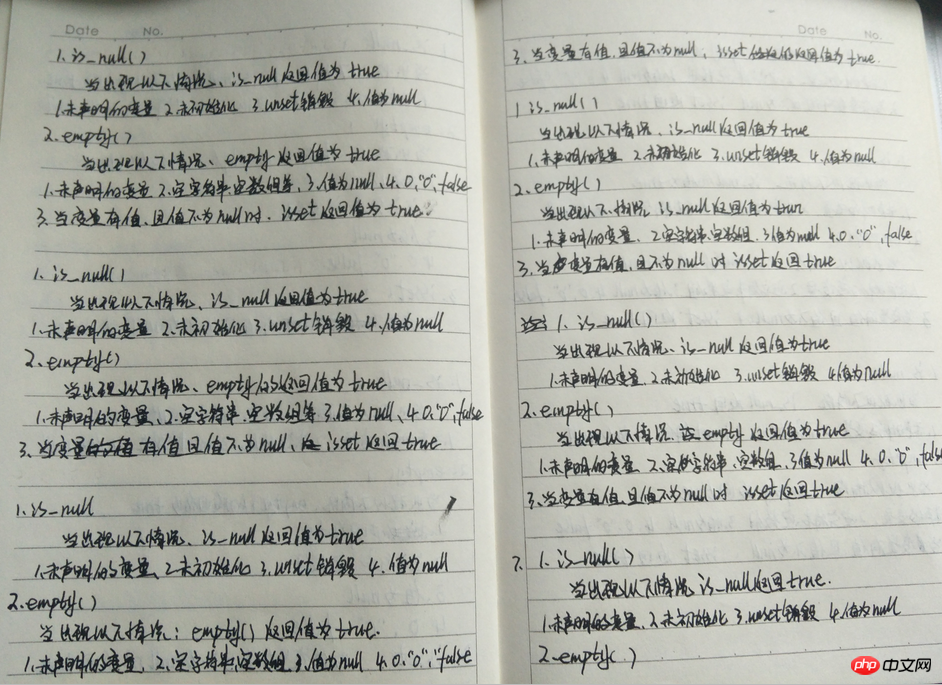 Date No.
1. is_null()
当出现以下情况、is_null返回值为true
1.未声明的变量 2.未初始化 3.unset销毁 4.值为null
2. empty()
当出现以下情况、empty返回值为true
1.未声明的变量 2.空字符串,空数组等, 3.值为null、4. 0,"0",false
3. 当变量有值,且值不为null时, isset返回值为true.
1. is_null()
当出现以下情况、is_null返回值为true
1.未声明的变量 2.未初始化 3.unset销毁 4.值为null
2. empty()
当出现以下情况、empty的返回值为true
1.未声明的变量、2.空字符串,空数组等 3.值为null、4. 0,"0",false
3、当变量有值且值不为null、isset返回true
1. is_null
当出现以下情况、is_null返回值为true
1.未声明的变量、2.未初始化 3.unset销毁 4.值为null
2. empty()
当出现以下情况: empty()返回值为true.
1.未声明的变量、2.空字符串,空数组 3.值为null 4. 0,"0","false
Date No.
3. 当变量有值,且值不为null, isset返回值为true.
1 is_null()
当出现以下情况、is_null返回值为true
1.未声明的变量 2.未初始化 3.unset销毁 4.值为null
2. empty()
当出现以下情况 is_null返回值为
1.未声明的变量、2.空字符串,空数组, 3值为null 4.0,"0",false
3. 当变量有值,且不为null时 isset返回true
1. is_null()
当出现以下情况、is_null返回值为true
1.未声明的变量 2.未初始化 3.unset销毁 4值为null
2. empty()
当出现以下情况, empty返回值为true
1.未声明的变量、2.空字符串,空数组, 3值为null 4. 0,"0",false
3、当变量有值,且值不为null时 isset返回true
7. 1. is_null()
当出现以下情况 is_null返回true.
1.未声明的变量、2.未初始化 3.unset销毁 4.值为null
2. empty()
php 中文网